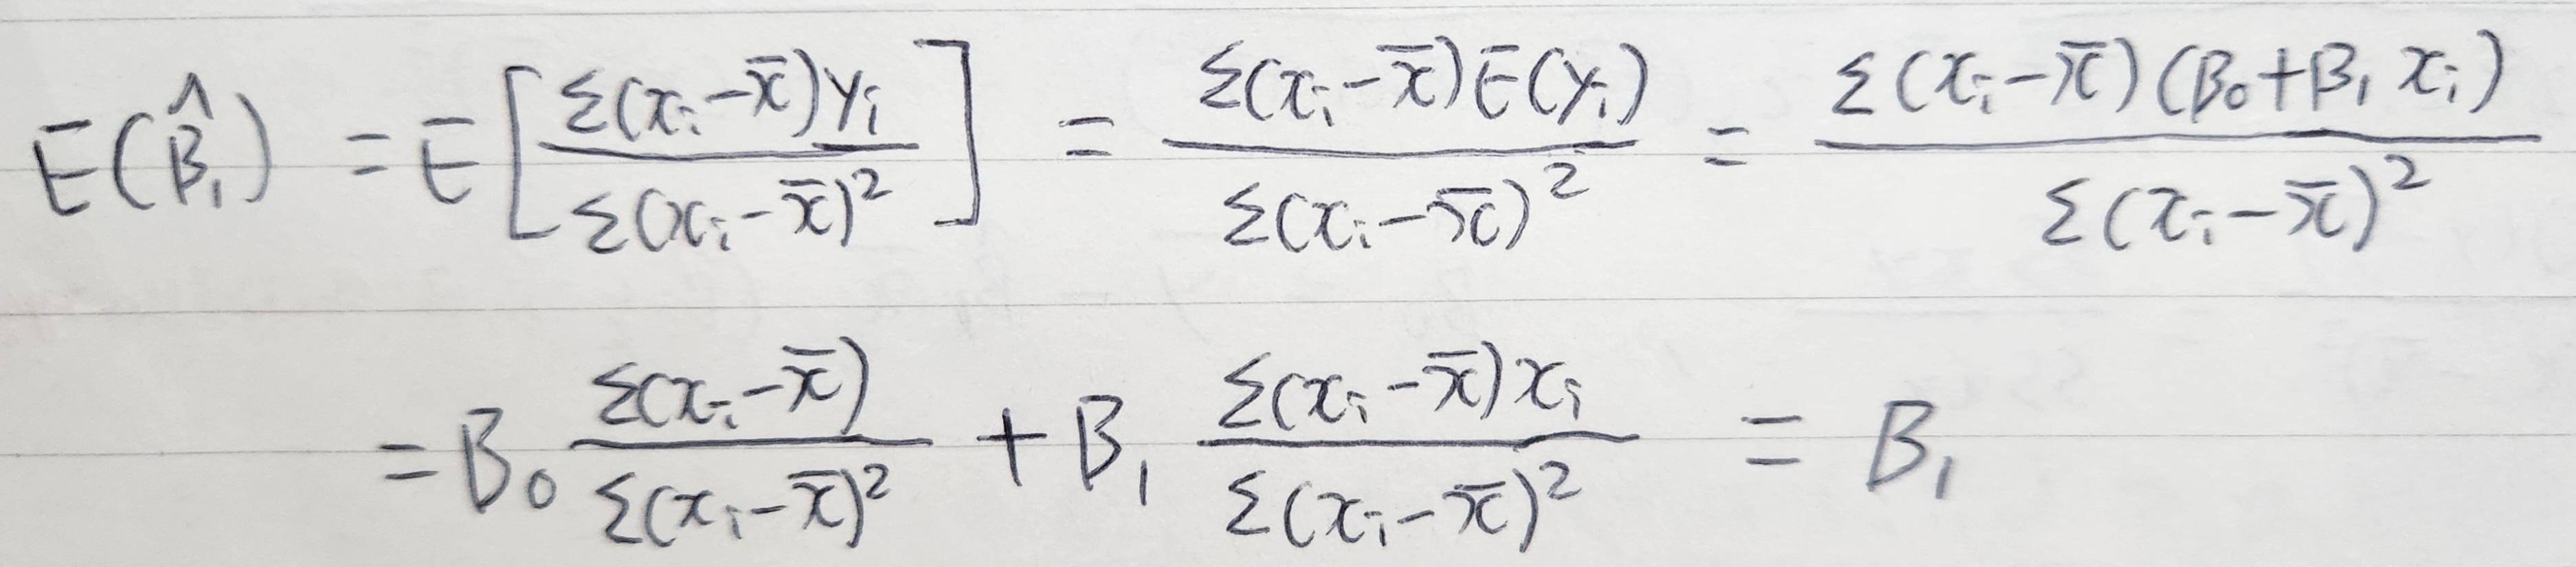 E(B̂₁) = E[Σ(xᵢ-x̄)yᵢ / Σ(xᵢ-x̄)²] = Σ(xᵢ-x̄)E(yᵢ) / Σ(xᵢ-x̄)² = Σ(xᵢ-x̄)(B₀+B₁xᵢ) / Σ(xᵢ-x̄)²
= B₀ Σ(xᵢ-x̄) / Σ(xᵢ-x̄)² + B₁ Σ(xᵢ-x̄)xᵢ / Σ(xᵢ-x̄)² = B₁